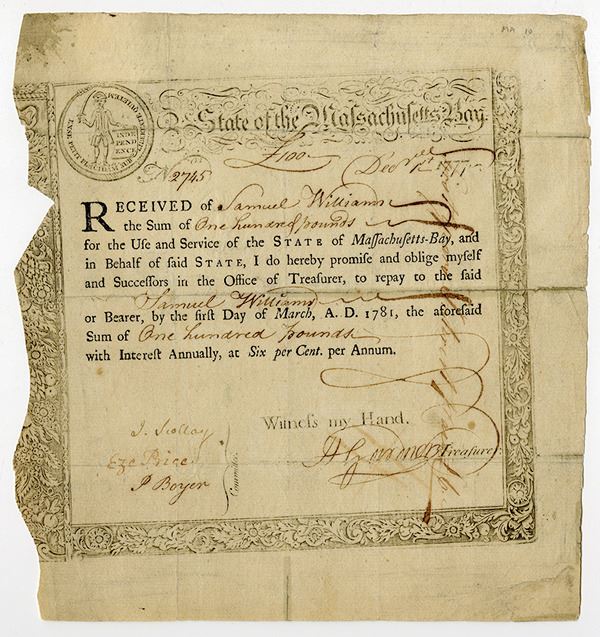 MA 10
State of the Maſſachuſetts Bay.
ENSE PETIT PLACIDAM SUB LIBERTATE QUIETEM
INDE
PEND
ENCE
£100
Decr. 1st 1777
No 2745
RECEIVED of Samuel Williams
the Sum of One hundred pounds
for the Uſe and Service of the STATE of Maſſachuſetts-Bay, and
in Behalf of ſaid STATE, I do hereby promiſe and oblige myſelf
and Succeſſors in the Office of Treaſurer, to repay to the ſaid
Samuel Williams
or Bearer, by the firſt Day of March, A. D. 1781, the aforeſaid
Sum of One hundred pounds
with Intereſt Annually, at Six per Cent. per Annum.
Witneſs my Hand.
J. Scollay
Eze Price
P Boyer
Committee.
H Gardner Treaſurer.